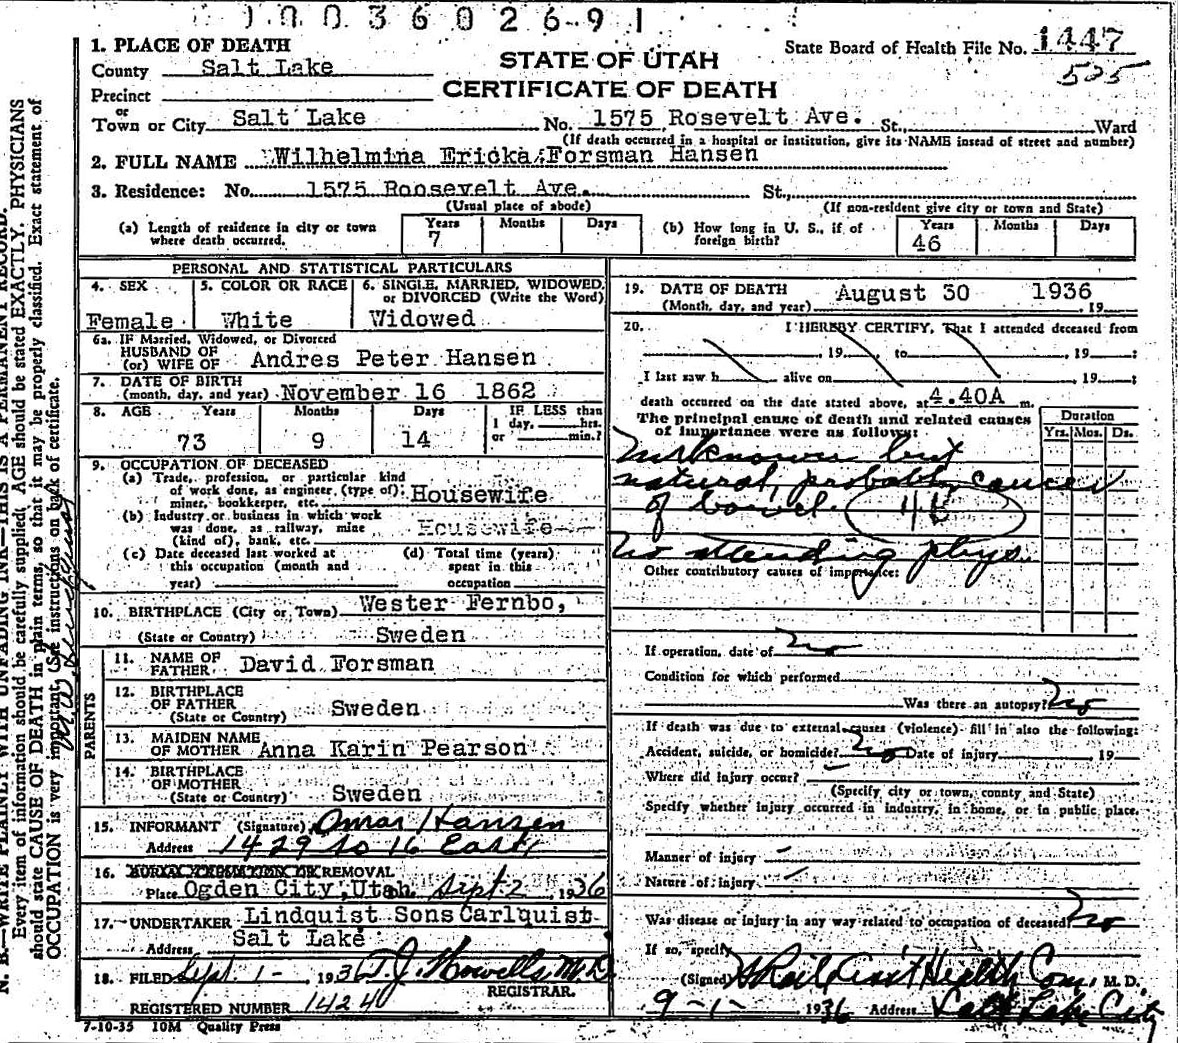 1003602691
1. PLACE OF DEATH
County Salt Lake
Precinct
or
Town or City Salt Lake No. 1575 Rosevelt Ave. St., Ward
STATE OF UTAH
CERTIFICATE OF DEATH
State Board of Health File No. 1447
525
(If death occurred in a hospital or institution, give its NAME insead of street and number)
2. FULL NAME Wilhelmina Ericka Forsman Hansen
3. Residence: No. 1575 Roosevelt Ave. St.,
(Usual place of abode) (If non-resident give city or town and State)
(a) Length of residence in city or town where death occurred. Years 7 Months Days
(b) How long in U. S., if of foreign birth? Years 46 Months Days
PERSONAL AND STATISTICAL PARTICULARS
4. SEX Female
5. COLOR OR RACE White
6. SINGLE, MARRIED, WIDOWED, or DIVORCED (Write the Word) Widowed
6a. IF Married, Widowed, or Divorced
HUSBAND OF
(or) WIFE OF Andres Peter Hansen
7. DATE OF BIRTH
(month, day, and year) November 16 1862
8. AGE Years 73 Months 9 Days 14 IF LESS than 1 day, hrs. or min.?
9. OCCUPATION OF DECEASED
(a) Trade, profession, or particular kind
of work done, as engineer, (type of)
miner, bookkeeper, etc. Housewife
(b) Industry or business in which work
was done, as railway, mine
(kind of), bank, etc. Housewife
(c) Date deceased last worked at
this occupation (month and
year)
(d) Total time (years)
spent in this
occupation
10. BIRTHPLACE (City or Town) Wester Fernbo,
(State or Country) Sweden
PARENTS
11. NAME OF
FATHER David Forsman
12. BIRTHPLACE
OF FATHER
(State or Country) Sweden
13. MAIDEN NAME
OF MOTHER Anna Karin Pearson
14. BIRTHPLACE
OF MOTHER
(State or Country) Sweden
15. INFORMANT (Signature) Omar Hansen
Address 1429 So 16 East
16. BURIAL CREMATION OR REMOVAL
Place Ogden City, Utah. Sept 2, 1936
17. UNDERTAKER Lindquist Sons Carlquist
Address Salt Lake
18. FILED Sept 1- 1936 T.J. Howells, M.D.
REGISTRAR.
REGISTERED NUMBER 1424
7-10-35 10M Quality Press
19. DATE OF DEATH August 30 1936
(Month, day, and year) , 19
20. I HEREBY CERTIFY, That I attended deceased from
, 19 , to , 19 ;
I last saw h alive on , 19 ;
death occurred on the date stated above, at 4.40A m.
The principal cause of death and related causes
of importance were as follows:
Duration
Yrs. Mos. Ds.
Unknown but
natural, probably cancer
of bowel.
No attending phys.
Other contributory causes of importance:
If operation, date of no
Condition for which performed
Was there an autopsy? No
If death was due to external causes (violence) fill in also the following:
Accident, suicide, or homicide? No Date of injury 19
Where did injury occur?
(Specify city or town, county and State)
Specify whether injury occurred in industry, in home, or in public place.
Manner of injury
Nature of injury
Was disease or injury in any way related to occupation of deceased? No
If so, specify
(Signed) Ass't Health Com, M. D.
9-1- 1936 Address Salt Lake City
N. B.—WRITE PLAINLY WITH UNFADING INK—THIS IS A PERMANENT RECORD.
Every item of information should be carefully supplied; AGE should be stated EXACTLY. PHYSICIANS
should state CAUSE OF DEATH in plain terms, so that it may be properly classified. Exact statement of
OCCUPATION is very important. (See instructions on back of certificate.